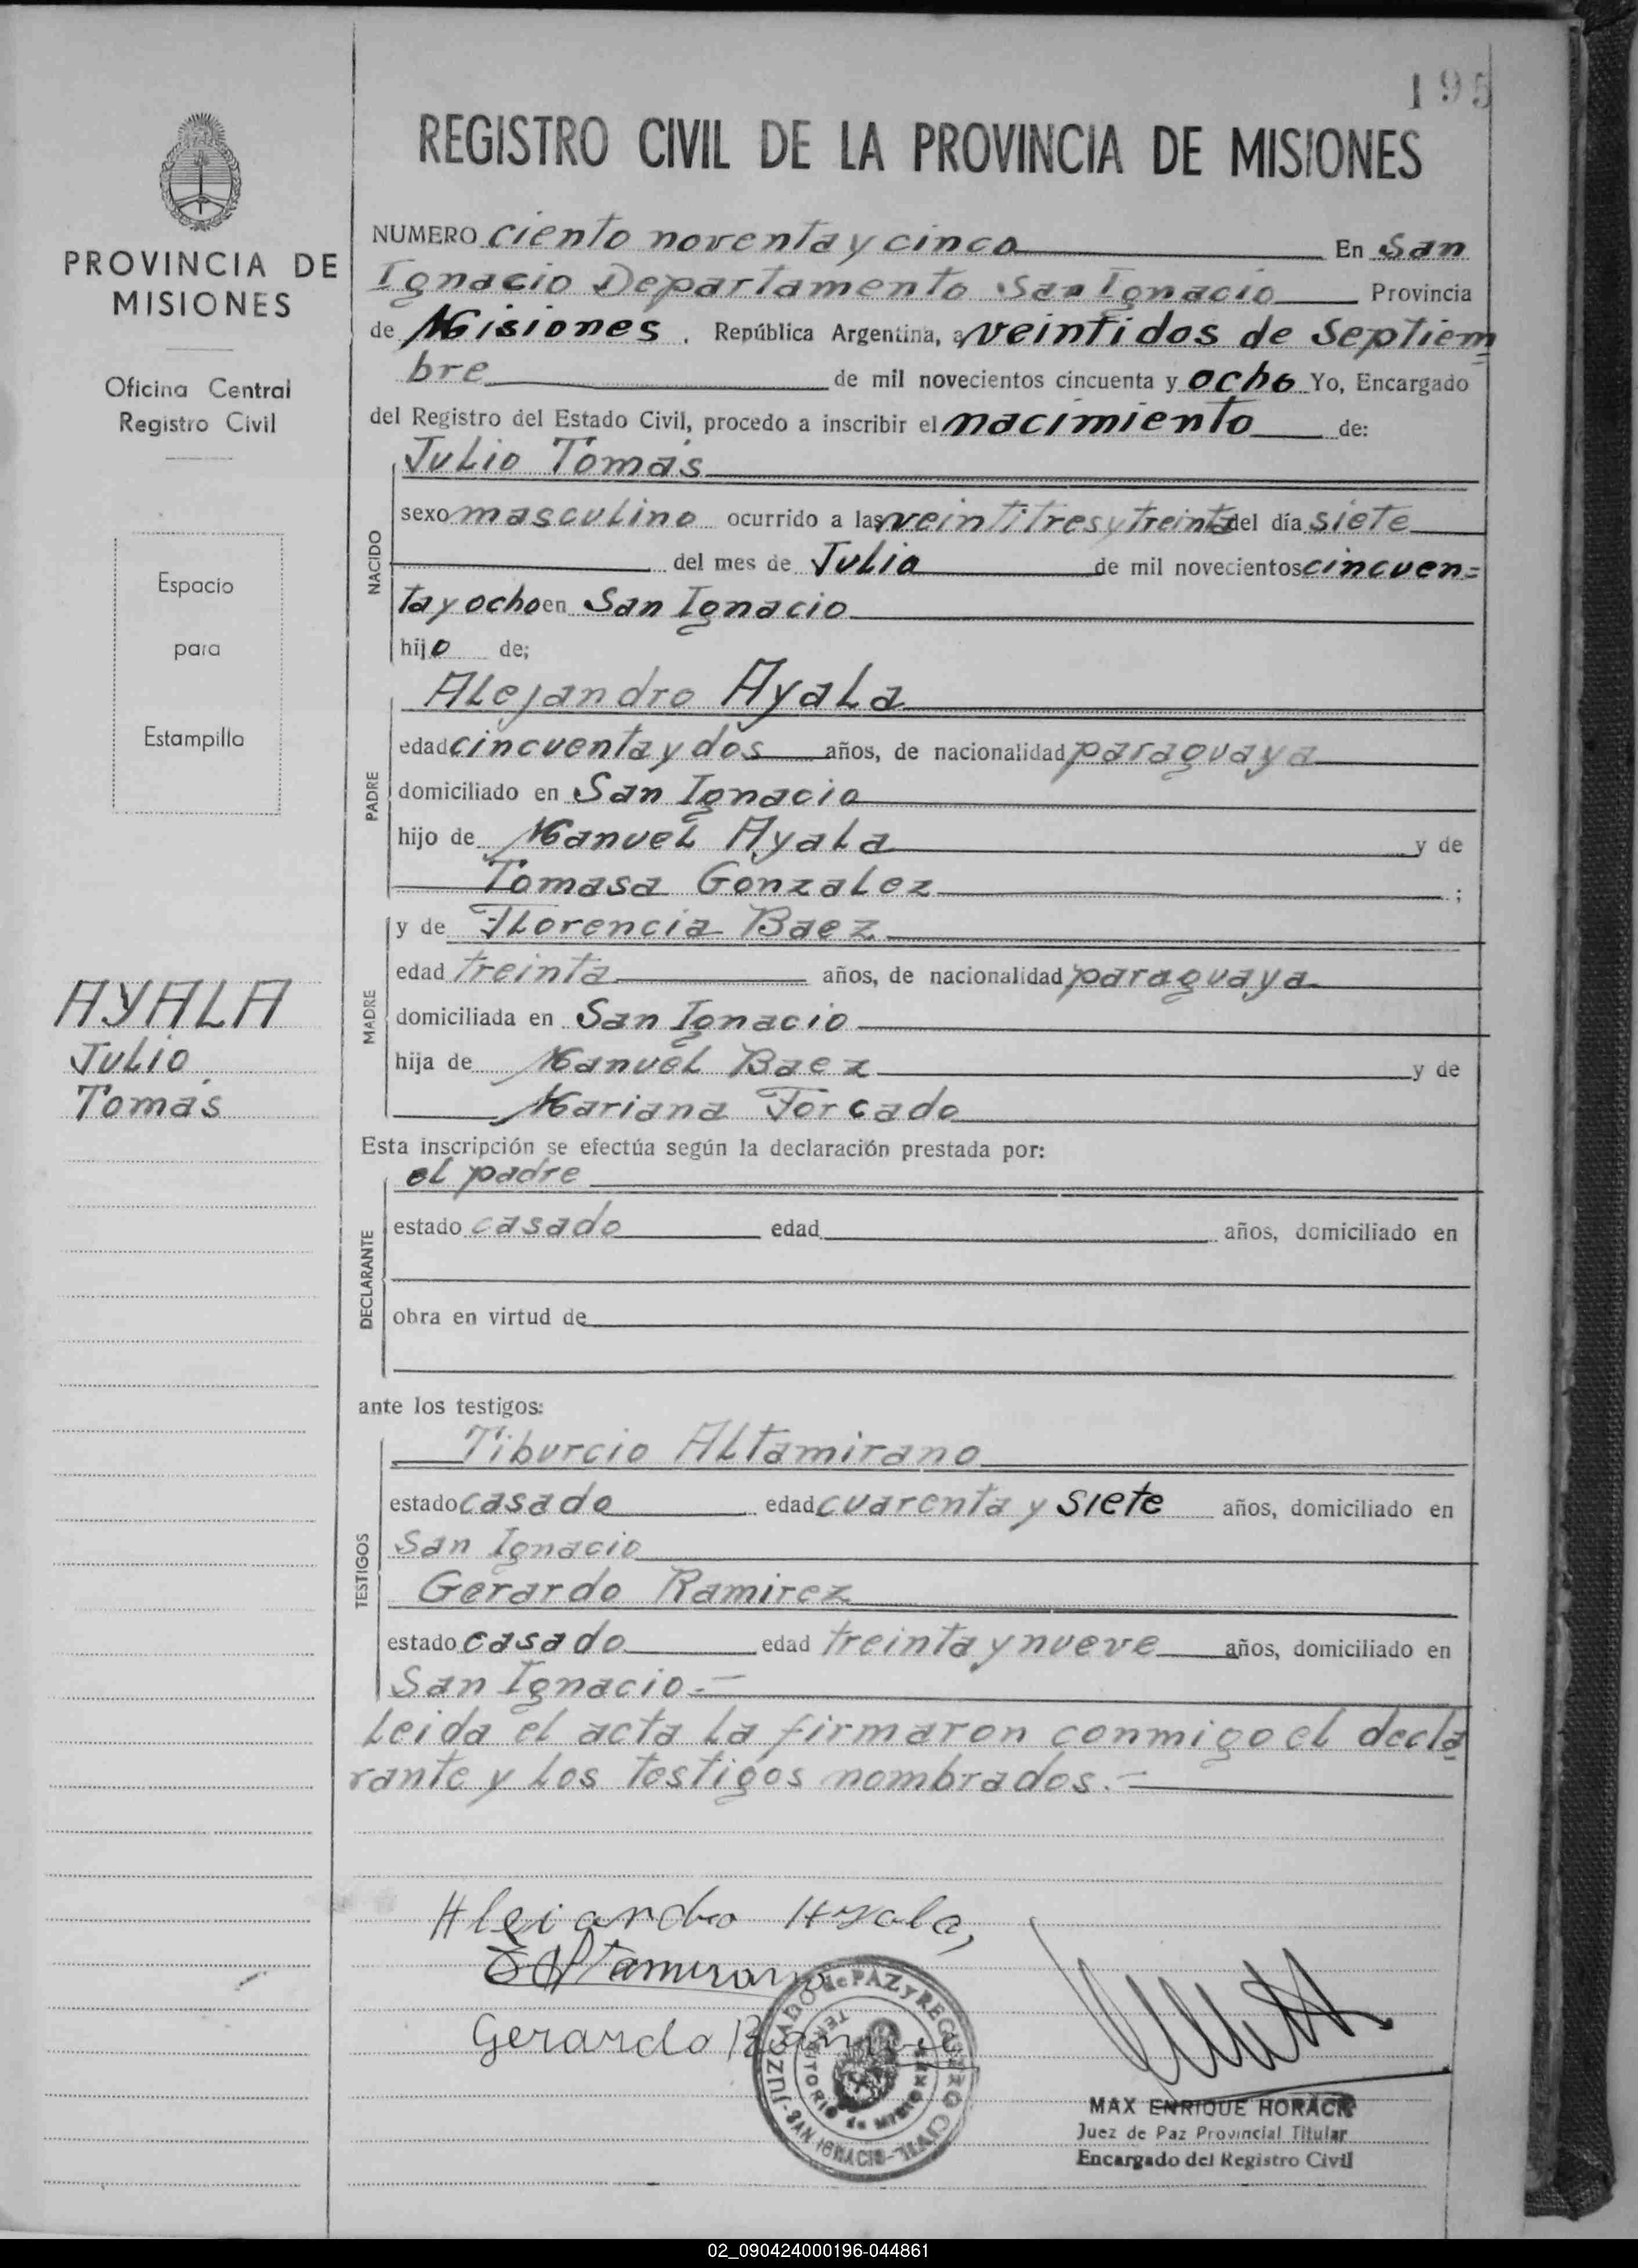 195
REGISTRO CIVIL DE LA PROVINCIA DE MISIONES
PROVINCIA DE
MISIONES
Oficina Central
Registro Civil
Espacio
para
Estampilla
AYALA
Julio
Tomás
NUMERO ciento noventa y cinco En San
Ignacio Departamento San Ignacio Provincia
de Misiones, República Argentina, a veintidos de Septiem=
bre de mil novecientos cincuenta y ocho Yo, Encargado
del Registro del Estado Civil, procedo a inscribir el nacimiento de:
NACIDO
Julio Tomás
sexo masculino ocurrido a las veintitres y treinta del día siete
del mes de Julio de mil novecientos cincuen=
ta y ocho en San Ignacio
hijo de;
PADRE
Alejandro Ayala
edad cincuenta y dos años, de nacionalidad paraguaya
domiciliado en San Ignacio
hijo de Manuel Ayala y de
Tomasa Gonzalez ;
MADRE
y de Florencia Baez
edad treinta años, de nacionalidad paraguaya
domiciliada en San Ignacio
hija de Manuel Baez y de
Mariana Forcado
Esta inscripción se efectúa según la declaración prestada por:
DECLARANTE
el padre
estado casado edad años, domiciliado en
obra en virtud de
ante los testigos:
TESTIGOS
Tiburcio Altamirano
estado casado edad cuarenta y siete años, domiciliado en
San Ignacio
Gerardo Ramirez
estado casado edad treinta y nueve años, domiciliado en
San Ignacio.-
Leida el acta la firmaron conmigo el decla
rante y los testigos nombrados.-
Aleiandro Ayala,
Altamirano
Gerardo Ramirez
JUZGADO de PAZ y REGISTRO CIVIL
-SAN IGNACIO-
TERRITORIO de MISIONES
MAX ENRIQUE HORACK
Juez de Paz Provincial Titular
Encargado del Registro Civil
02_090424000196-044861